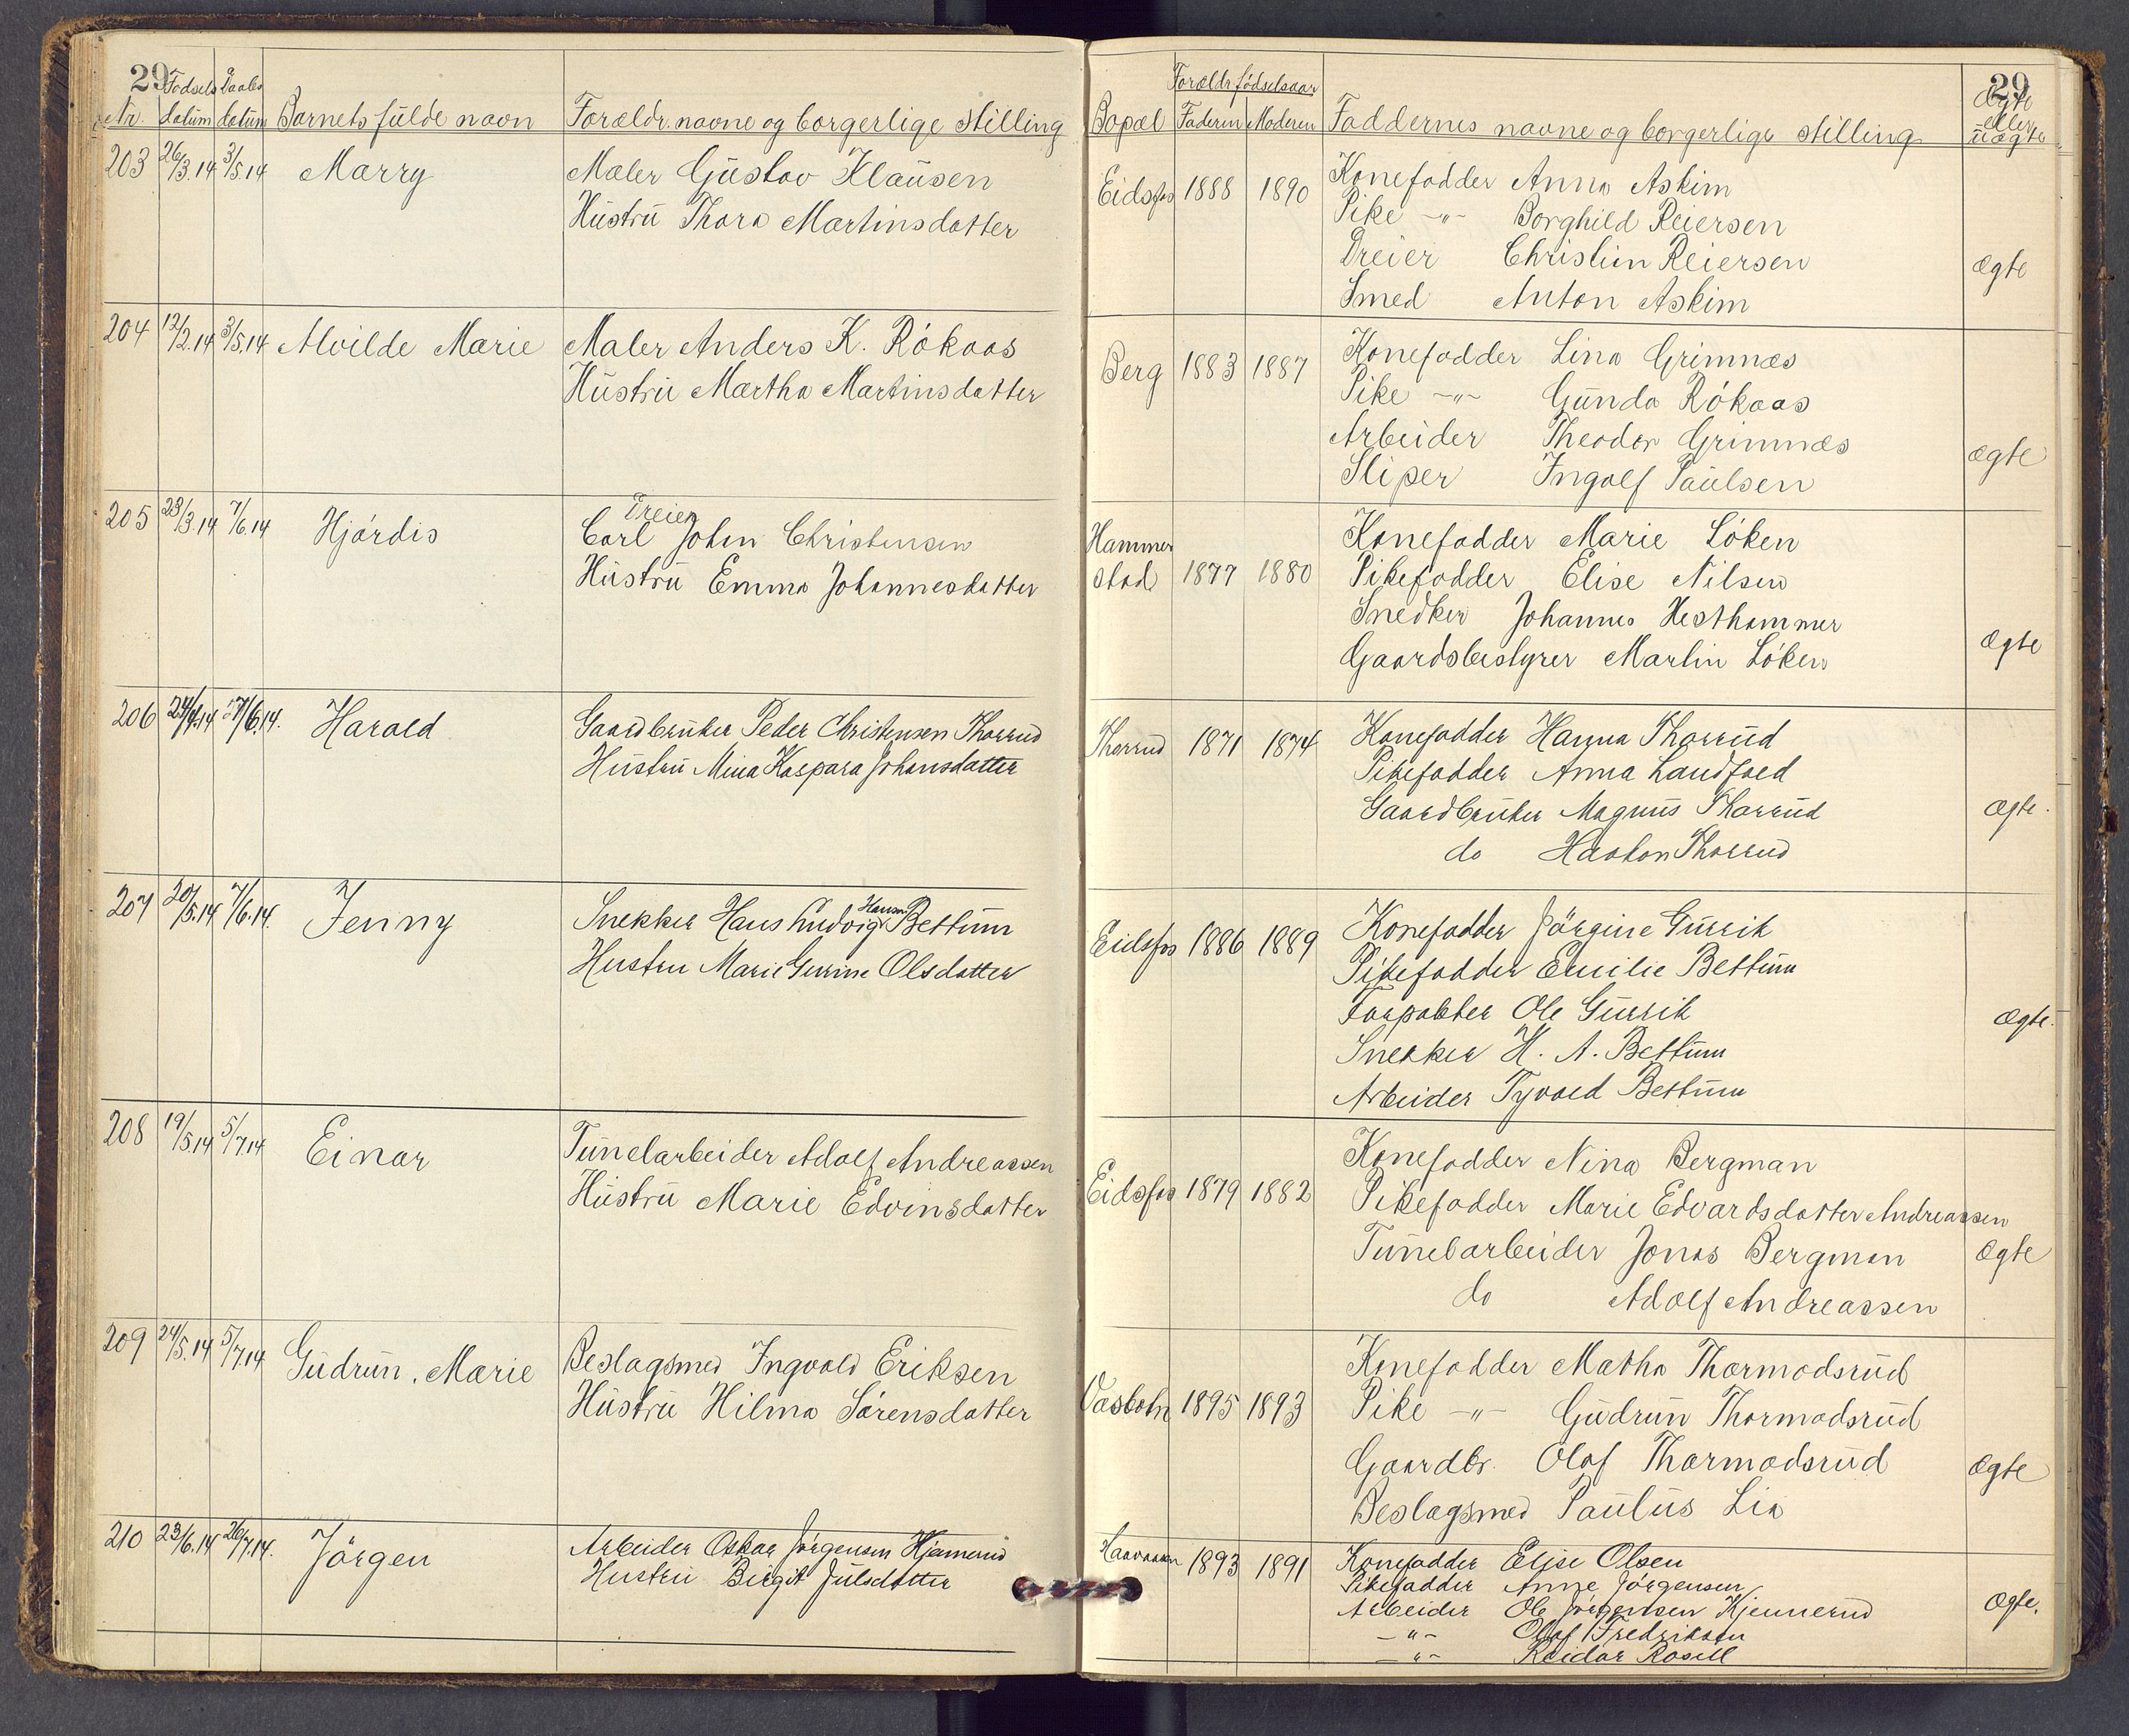 29
29
Fødsels
Daabs
Forældr. fødselsaar
Nr. datum datum Barnets fulde navn Forældr. navne og borgerlige stilling
Bopæl Faderen Moderen Faddernes navne og borgerlige stilling Ægte eller uægte
203 26/3.14 3/5.14 Marry Maler Gustav Klausen
Hustru Thora Martinsdatter
Eidsfos 1888 1890 Konefadder Anna Askim
Pike -"- Borghild Reiersen
Dreier Christian Reiersen
Smed Anton Askim
ægte
204 12/2.14 3/5.14 Alvilde Marie Maler Anders K. Rókaas
Hustru Martha Martinsdatter
Berg 1883 1887 Konefadder Lina Grimnæs
Pike -"- Gunda Rókaas
Arbeider Theodor Grimnæs
Sliper Ingolf Paulsen
ægte
205 23/3.14 7/6.14 Hjórdis Dreier
Carl Johan Christensen
Hustru Emma Johannesdatter
Hammerstad 1877 1880 Konefadder Marie Lóken
Pikefadder Elise Nilsen
Snedker Johannes Hesthammer
Gaardsbestyrer Martin Lóken
Ægte
206 24/4.14 7/6.14. Harald Gaardbruker Peder Christensen Thorrud
Hustru Mina Kaspara Johansdatter
Thorrud 1871 1874 Konefadder Hanna Thorrud
Pikefadder Anna Landfald
Gaardbruker Magnus Thorrud
do Haakon Thorrud
Ægte.
207 20/5.14 7/6.14. Jenny Snekker Hans Ludvig Hansen Bettum
Hustru Marie Gurine Olsdatter
Eidsfos 1886 1889 Konefadder Jörgine Gurrik
Pikefadder Emilie Bettum
Forpakter Ole Gurrik
Snekker H. A. Bettum
Arbeider Tyvald Bettum
Ægte.
208 19/5.14 5/7.14 Einar Tunelarbeider Adolf Andreassen
Hustru Marie Edvinsdatter
Eidsfos 1879 1882 Konefadder Nina Bergman
Pikefadder Marie Edvardsdatter Andreassen
Tunelarbeider Jonas Bergman
do Adolf Andreassen
Ægte
209 24/5.14 5/7.14 Gudrun, Marie Beslagsmed Ingvald Eriksen
Hustru Hilma Sórensdatter
Vasbotn 1895 1893 Konefadder Matha Thormodsrud
Pike -"- Gudrun Thormodsrud
Gaardbr. Olaf Thormodsrud
Beslagsmed Paulus Lia
Ægte
210 23/6.14 26/7.14. Jórgen Arbeider Oskar Jórgensen Hjemerud
Hustru Birgit Julsdatter
1893 1891 Konefadder Elise Olsen
Pikefadder Anne Jórgensen
Arbeider Ole Jórgensen Kjennerud
-"- Olaf Fredriksen
-"- Reidar Rosell
Ægte.